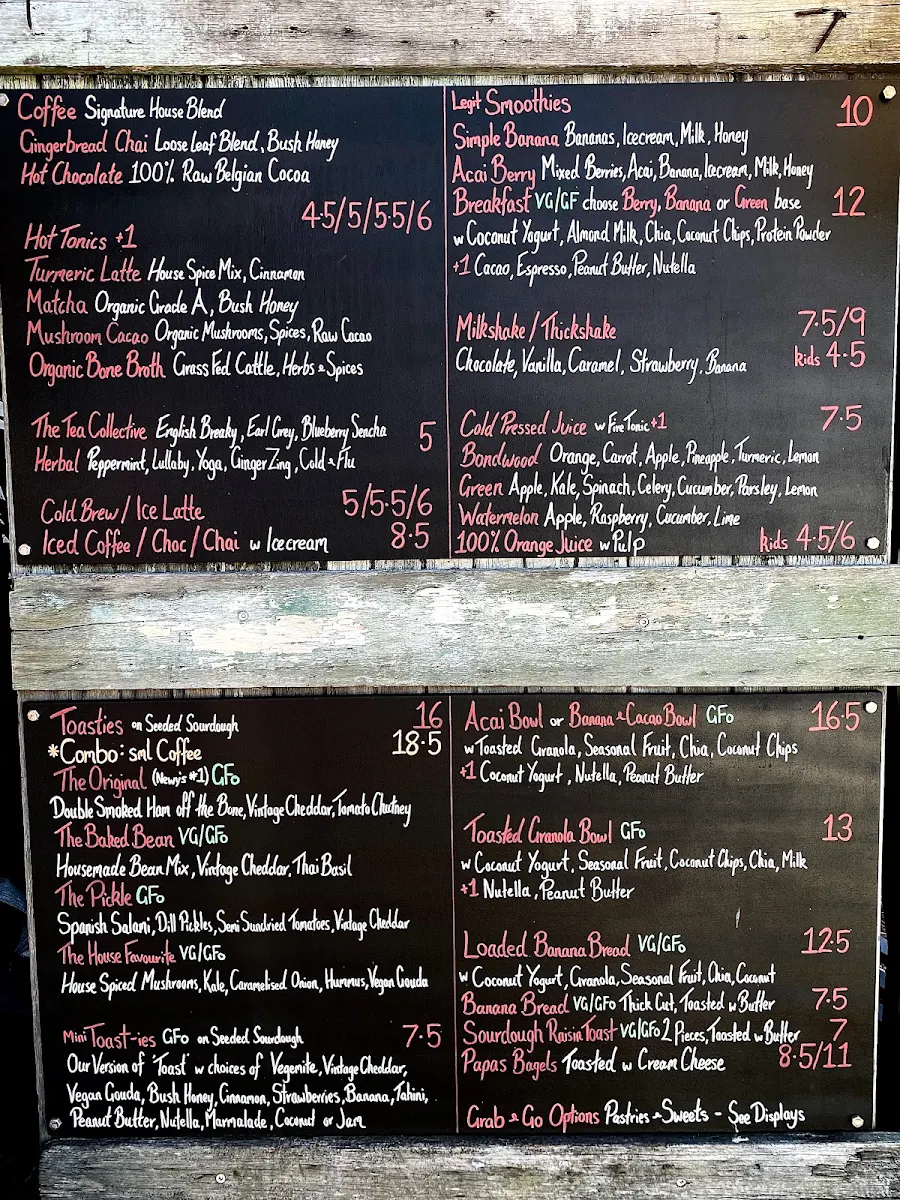 Coffee Signature House Blend
Gingerbread Chai Loose Leaf Blend, Bush Honey
Hot Chocolate 100% Raw Belgian Cocoa
4·5/5/5·5/6
Hot Tonics +1
Turmeric Latte House Spice Mix, Cinnamon
Matcha Organic Grade A, Bush Honey
Mushroom Cacao Organic Mushrooms, Spices, Raw Cacao
Organic Bone Broth Grass Fed Cattle, Herbs & Spices
The Tea Collective English Breaky, Earl Grey, Blueberry Sencha 5
Herbal Peppermint, Lullaby, Yoga, Ginger Zing, Cold & Flu
Cold Brew / Ice Latte 5/5·5/6
Iced Coffee / Choc / Chai w Icecream 8·5
Legit Smoothies 10
Simple Banana Bananas, Icecream, Milk, Honey
Acai Berry Mixed Berries, Acai, Banana, Icecream, Milk, Honey
Breakfast VG/GF choose Berry, Banana or Green base 12
w Coconut Yogurt, Almond Milk, Chia, Coconut Chips, Protein Powder
+1 Cacao, Espresso, Peanut Butter, Nutella
Milkshake / Thickshake 7·5/9
Chocolate, Vanilla, Caramel, Strawberry, Banana kids 4·5
Cold Pressed Juice w Fire Tonic +1 7·5
Bondwood Orange, Carrot, Apple, Pineapple, Turmeric, Lemon
Green Apple, Kale, Spinach, Celery, Cucumber, Parsley, Lemon
Watermelon Apple, Raspberry, Cucumber, Lime
100% Orange Juice w Pulp kids 4·5/6
Toasties on Seeded Sourdough 16
*Combo: sml Coffee 18·5
The Original (Newy's #1) GFo
Double Smoked Ham off the Bone, Vintage Cheddar, Tomato Chutney
The Baked Bean VG/GFo
Housemade Bean Mix, Vintage Cheddar, Thai Basil
The Pickle GFo
Spanish Salami, Dill Pickles, Semi Sundried Tomatoes, Vintage Cheddar
The House Favourite VG/GFo
House Spiced Mushrooms, Kale, Caramelised Onion, Hummus, Vegan Gouda
Mini Toast-ies GFo on Seeded Sourdough 7·5
Our Version of 'Toast' w choices of Vegemite, Vintage Cheddar,
Vegan Gouda, Bush Honey, Cinnamon, Strawberries, Banana, Tahini,
Peanut Butter, Nutella, Marmalade, Coconut or Jam
Acai Bowl or Banana & Cacao Bowl GFo 16·5
w Toasted Granola, Seasonal Fruit, Chia, Coconut Chips
+1 Coconut Yogurt, Nutella, Peanut Butter
Toasted Granola Bowl GFo 13
w Coconut Yogurt, Seasonal Fruit, Coconut Chips, Chia, Milk
+1 Nutella, Peanut Butter
Loaded Banana Bread VG/GFo 12·5
w Coconut Yogurt, Granola, Seasonal Fruit, Chia, Coconut
Banana Bread VG/GFo Thick Cut, Toasted w Butter 7·5
Sourdough Raisin Toast VG/GFo 2 Pieces, Toasted w Butter 7
Papas Bagels Toasted w Cream Cheese 8·5/11
Grab & Go Options Pastries & Sweets - See Displays